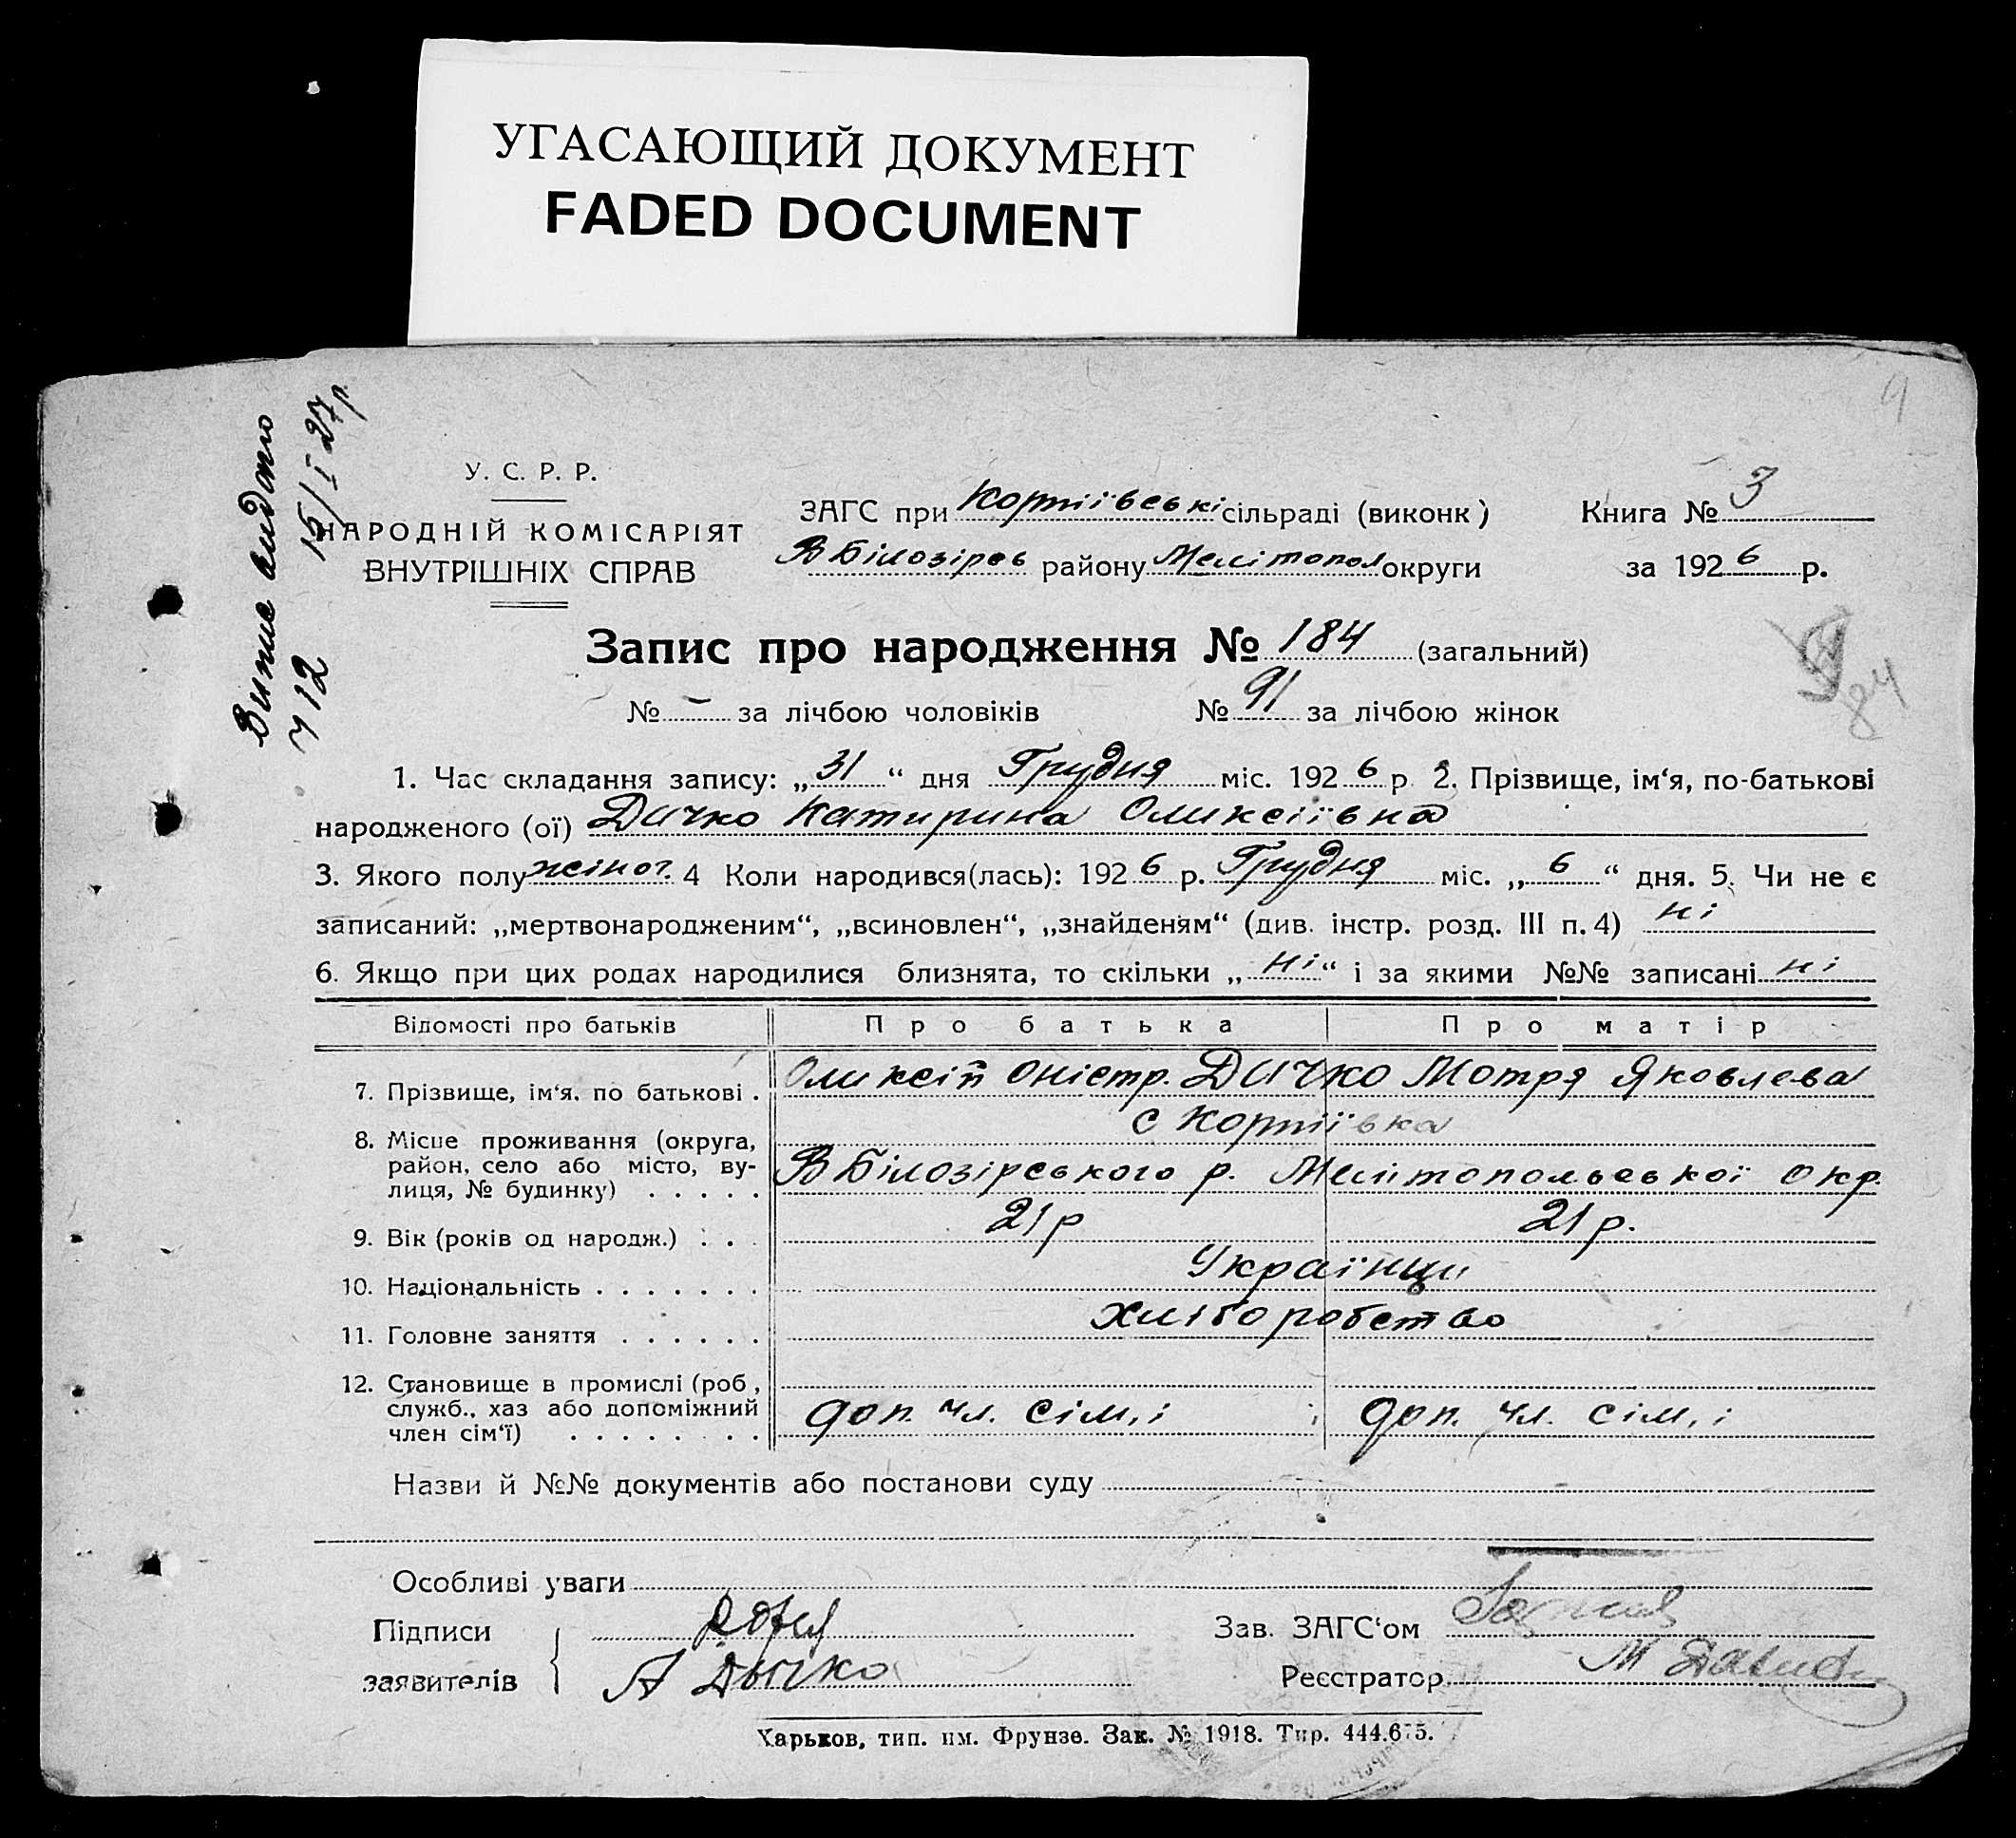 УГАСАЮЩИЙ ДОКУМЕНТ
FADED DOCUMENT
Випис видано
15/I 27 р
712
9
У. С. Р. Р.
НАРОДНІЙ КОМІСАРІЯТ
ВНУТРІШНІХ СПРАВ
ЗАГС при Корніївські сільраді (виконк)
В Білозірс району Мелітопол округи
Книга № 3
за 1926 р.
Запис про народження № 184 (загальний)
84
№ – за лічбою чоловіків № 91 за лічбою жінок
1. Час складання запису: „31“ дня Грудня міс. 1926 р 2. Прізвище, ім‘я, по-батькові
народженого (ої) Дичко Катирина Оликсіївна
3. Якого полу жіноч. 4 Коли народився(лась): 1926 р. Грудня міс. „6“ дня. 5. Чи не є
записаний: „мертвонародженим“, „всиновлен“, „знайденям“ (див. інстр. розд. III п. 4) ні
6. Якщо при цих родах народилися близнята, то скільки „ні“ і за якими №№ записані ні
Відомості про батьків Про батька Про матір
7. Прізвище, ім‘я, по батькові . Оликсій Оністр. Дичко Мотря Яковлева
8. Місце проживання (округа, район, село або місто, вулиця, № будинку) . . . . . с Корніївка
В Білозірського р. Мелітопольської окр.
9. Вік (років од народж.) : . . 21 р 21 р.
10. Національність . . . . . . . Українці
11. Головне заняття . . . . . . хліборобство
12. Становище в промислі (роб, служб., хаз або допоміжний член сім‘ї) . . . . . . . . доп. чл. сім,і доп. чл. сім,і
Назви й №№ документів або постанови суду
Особливі уваги
Підписи
заявителів
А Дычко
Зав. ЗАГС‘ом
Реєстратор М
Харьков, тип. им. Фрунзе. Зак. № 1918. Тир. 444.675.